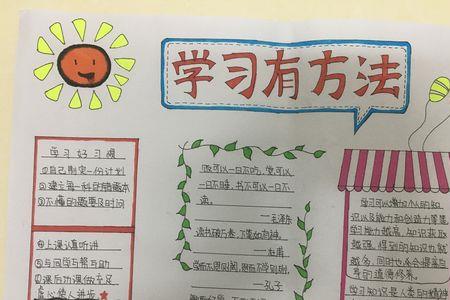 学习有方法
学习好习惯
①自己制定一份计划
②建立每一科的错题本
③不懂的题要及时问
④上课认真听讲
⑤与同学互帮互助
⑥课后功课做充足
虚心使人进步
饭可以一日不吃，觉可以
一日不睡，书不可以一日不
读。
——毛泽东
读书破万卷，下笔如有神。
——杜甫
学而不思则罔，思而不学则殆。
——孔子
学习可以增加个人的知
识以及能力和创造力掌握
学习能力越高，知识获取
越强，得到的知识也就
越多，同时也会会提高自
己的道德修养。
学习知识是人类的精神